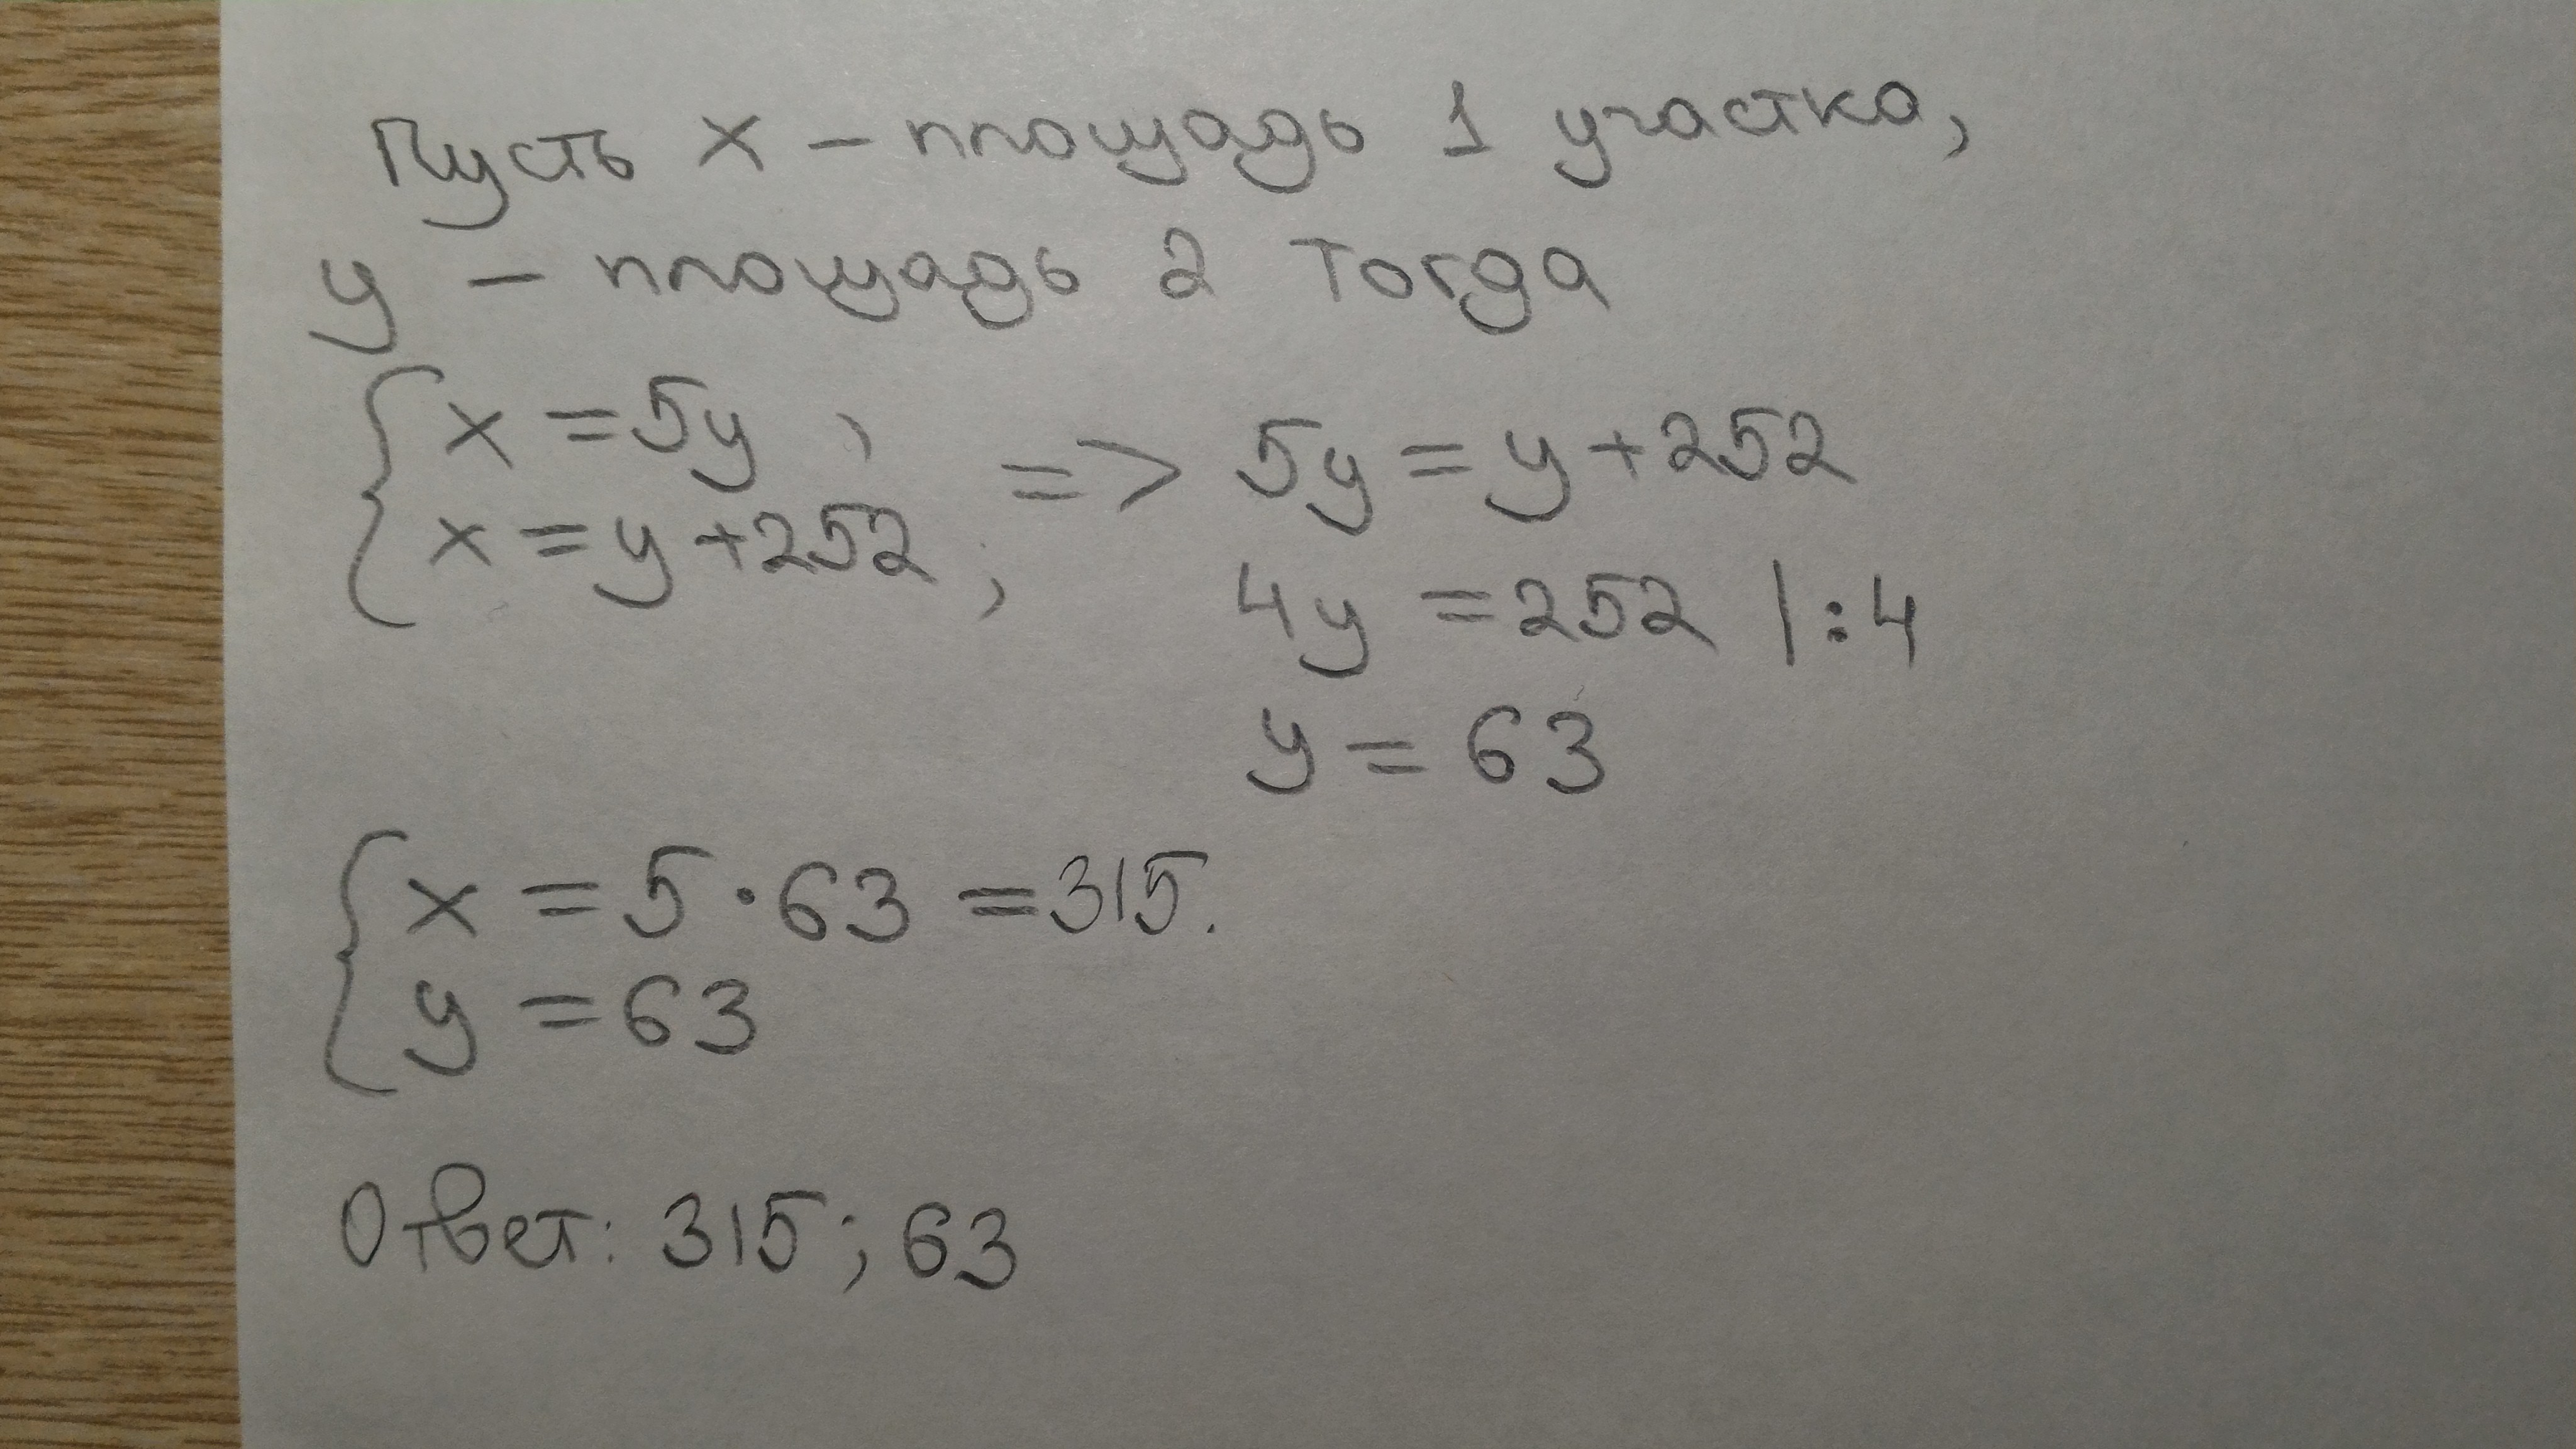 Пусть x – площадь 1 участка,
y – площадь 2 Тогда
{ x = 5y , => 5y = y + 252
x = y + 252 ; 4y = 252 | : 4
y = 63
{ x = 5 · 63 = 315.
y = 63
Ответ: 315; 63